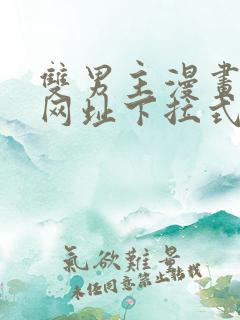 雙男主漫畫
网址下拉式
氣欲難量
未经同意禁止转载